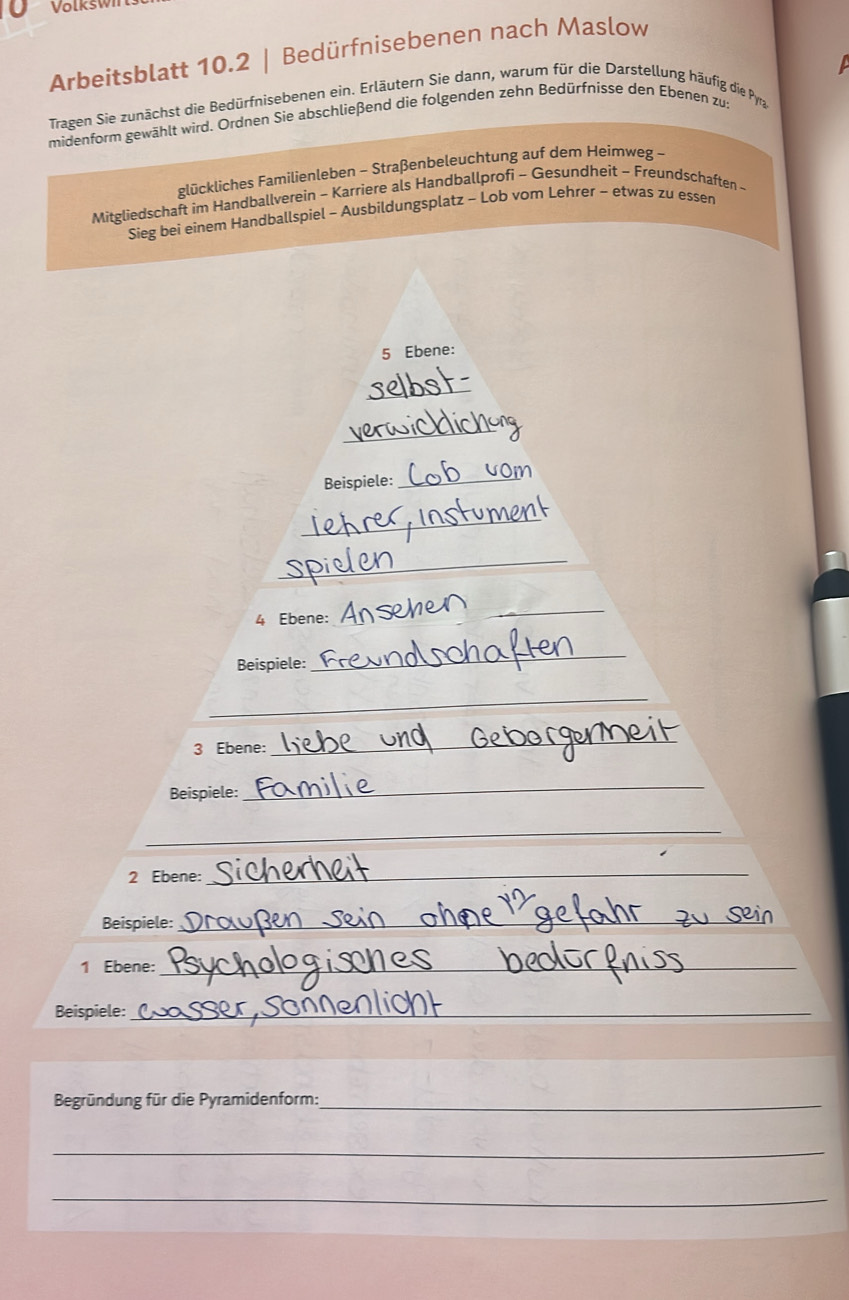 Arbeitsblatt 10.2 | Bedürfnisebenen nach Maslow
Tragen Sie zunächst die Bedürfnisebenen ein. Erläutern Sie dann, warum für die Darstellung häufig die Pyra-
midenform gewählt wird. Ordnen Sie abschließend die folgenden zehn Bedürfnisse den Ebenen zu:
glückliches Familienleben – Straßenbeleuchtung auf dem Heimweg –
Mitgliedschaft im Handballverein – Karriere als Handballprofi – Gesundheit – Freundschaften –
Sieg bei einem Handballspiel – Ausbildungsplatz – Lob vom Lehrer – etwas zu essen
5 Ebene:
selbst-
verwicklichung
Beispiele: Lob vom
lehrer, instument
spielen
4 Ebene: Ansehen
Beispiele: Freundschaften
3 Ebene: liebe und Geborgenheit
Beispiele: Familie
2 Ebene: Sicherheit
Beispiele: Draußen sein ohne in gefahr zu sein
1 Ebene: Psychologisches bedürfniss
Beispiele: wasser, sonnenlicht
Begründung für die Pyramidenform: